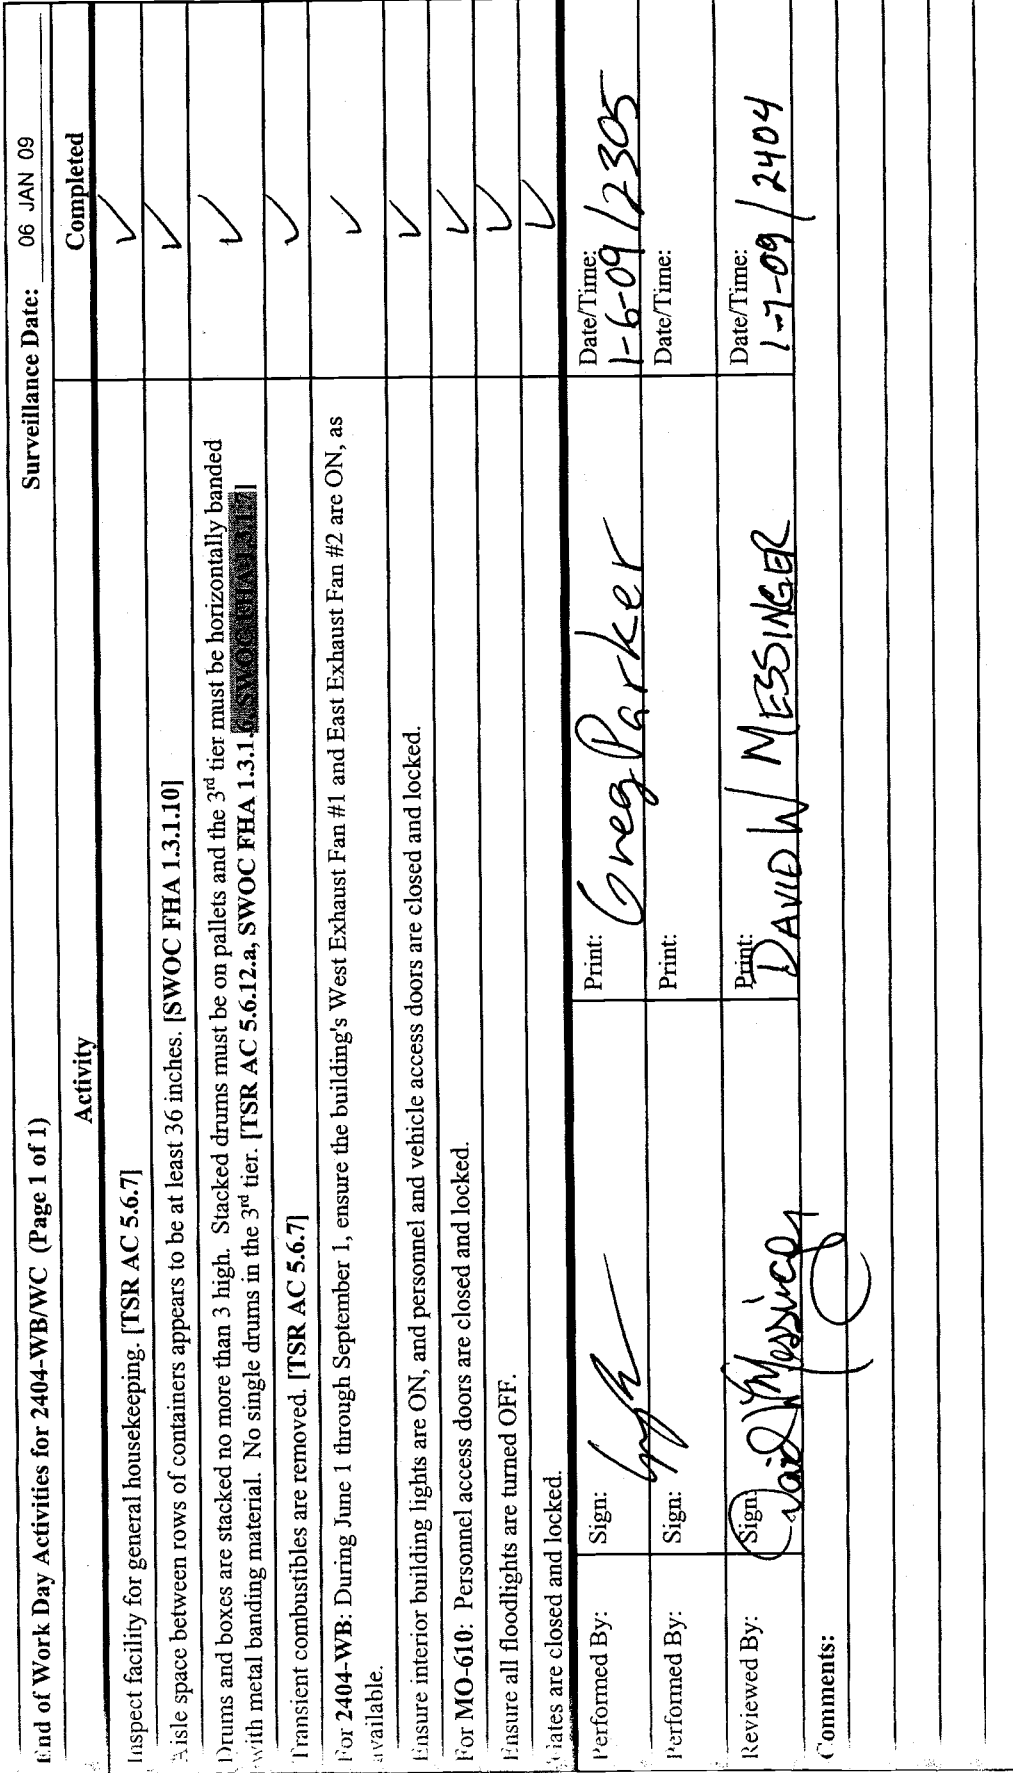 End of Work Day Activities for 2404-WB/WC (Page 1 of 1) Surveillance Date: 06 JAN 09
Activity Completed
Inspect facility for general housekeeping. [TSR AC 5.6.7] ✓
Aisle space between rows of containers appears to be at least 36 inches. [SWOC FHA 1.3.1.10] ✓
Drums and boxes are stacked no more than 3 high. Stacked drums must be on pallets and the 3rd tier must be horizontally banded ✓
with metal banding material. No single drums in the 3rd tier. [TSR AC 5.6.12.a, SWOC FHA 1.3.1.6, SWOC FHA 1.3.1.7]
Transient combustibles are removed. [TSR AC 5.6.7] ✓
For 2404-WB: During June 1 through September 1, ensure the building's West Exhaust Fan #1 and East Exhaust Fan #2 are ON, as ✓
available.
Ensure interior building lights are ON, and personnel and vehicle access doors are closed and locked. ✓
For MO-610: Personnel access doors are closed and locked. ✓
Ensure all floodlights are turned OFF. ✓
Gates are closed and locked. ✓
Performed By: Sign: Print: Greg Parker Date/Time: 1-6-09/2305
Performed By: Sign: Print: Date/Time:
Reviewed By: Sign: David W Messinger Print: DAVID W MESSINGER Date/Time: 1-7-09/2404
Comments: